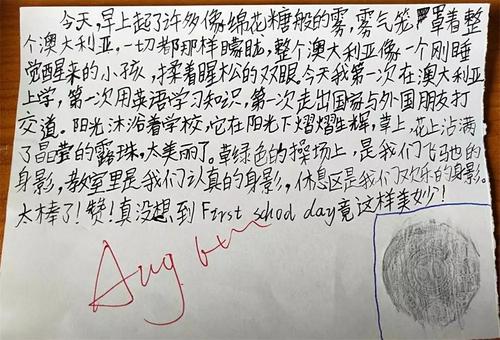 今天,早上起了许多像绵花糖般的雾,雾气笼罩着整
个澳大利亚,一切都那样朦胧,整个澳大利亚像一个刚睡
觉醒来的小孩,揉着腥松的双眼。今天我第一次在澳大利亚
上学,第一次用英语学习知识,第一次走出国家与外国朋友打
交道。阳光沐浴着学校,它在阳光下熠熠生辉,草上,花上沾满
了晶莹的露珠,太美丽了。草绿色的操场上,是我们飞驰的
身影,教室里是我们认真的身影,休息区是我们欢乐的身影。
太棒了!赞!真没想到First school day竟这样美妙!